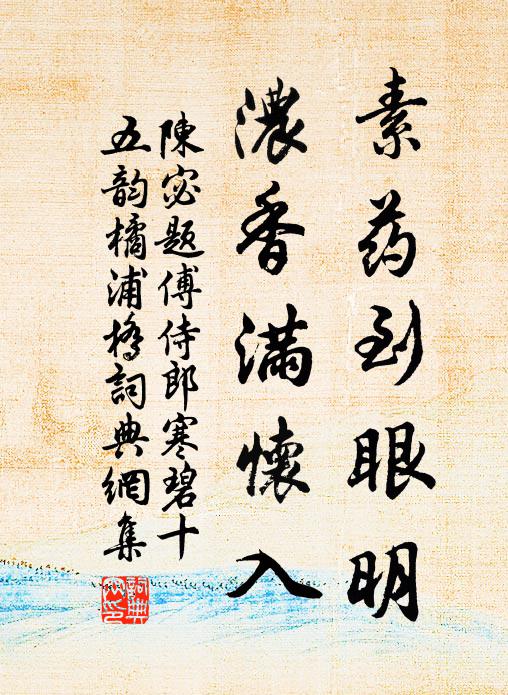 素药到眼明
濃香滿懷入
陳宓題傅侍郎寒碧十
五韵橘浦橋詞典網集